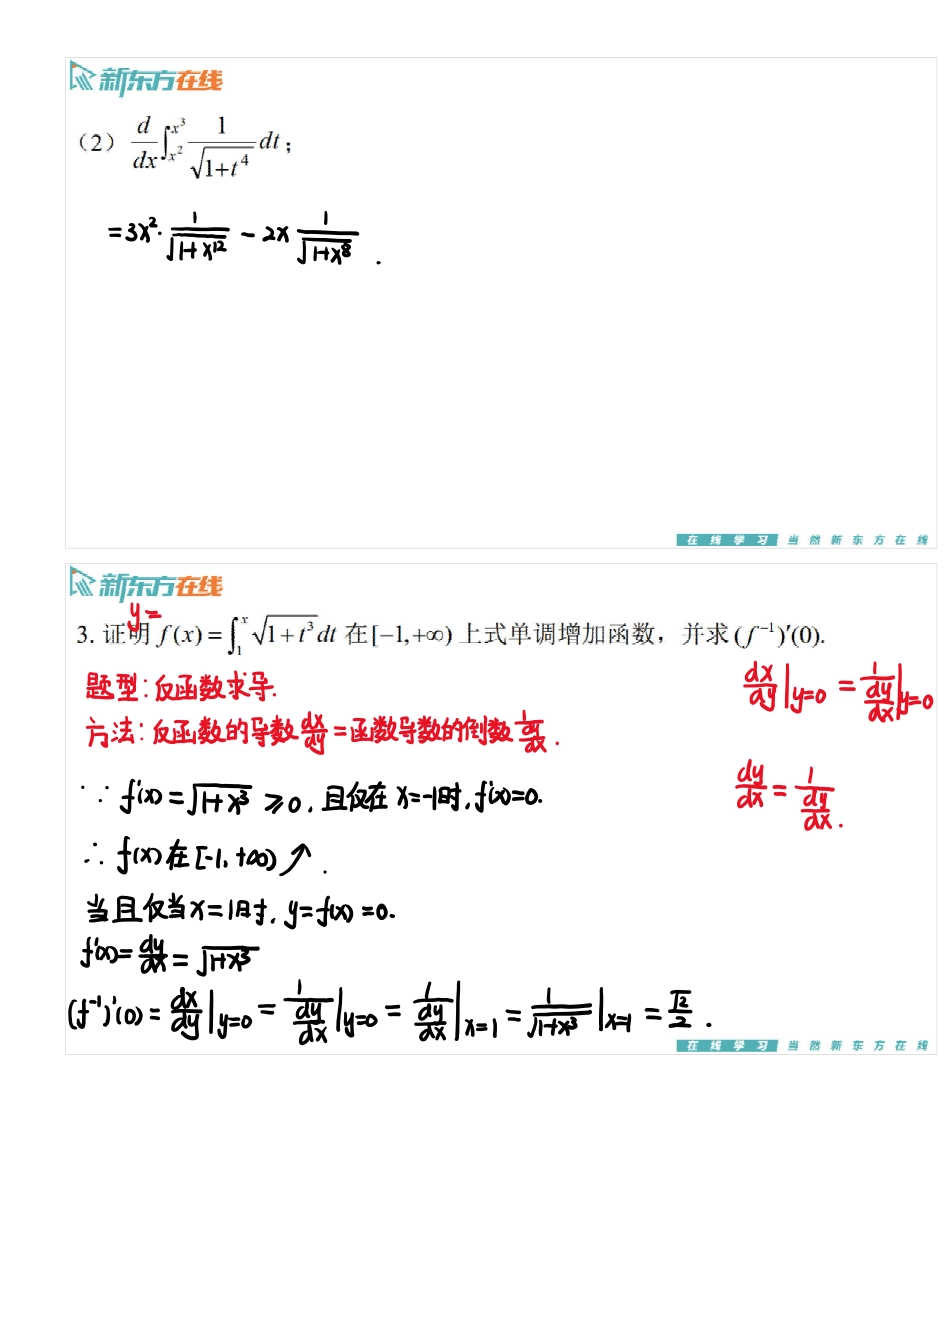 新东方在线
（2） d/dx ∫_{x²}^{x³} 1/√(1+t⁴) dt；
=3x²·1/√(1+x¹²) - 2x 1/√(1+x⁸) .
在线学习 当然新东方在线
新东方在线
y=
3. 证明 f(x) = ∫_1^x √(1+t³) dt 在[−1,+∞) 上式单调增加函数，并求(f⁻¹)′(0).
题型：反函数求导.
dx/dy|y=0 = 1/(dy/dx)|y=0
方法：反函数的导数 dx/dy = 函数导数的倒数 1/(dy/dx) .
dy/dx = 1/(dy/dx) .
∵ f'(x) = √(1+x³) ≥0, 且仅在 x=-1时, f'(x)=0.
∴ f(x) 在 [-1, +∞) ↗ .
当且仅当 x=1时, y=f(x) =0.
f'(x)= dy/dx = √(1+x³)
(f⁻¹)'(0) = dx/dy|y=0 = 1/(dy/dx)|y=0 = 1/(dy/dx)|x=1 = 1/√(1+x³)|x=1 = √2/2 .
在线学习 当然新东方在线